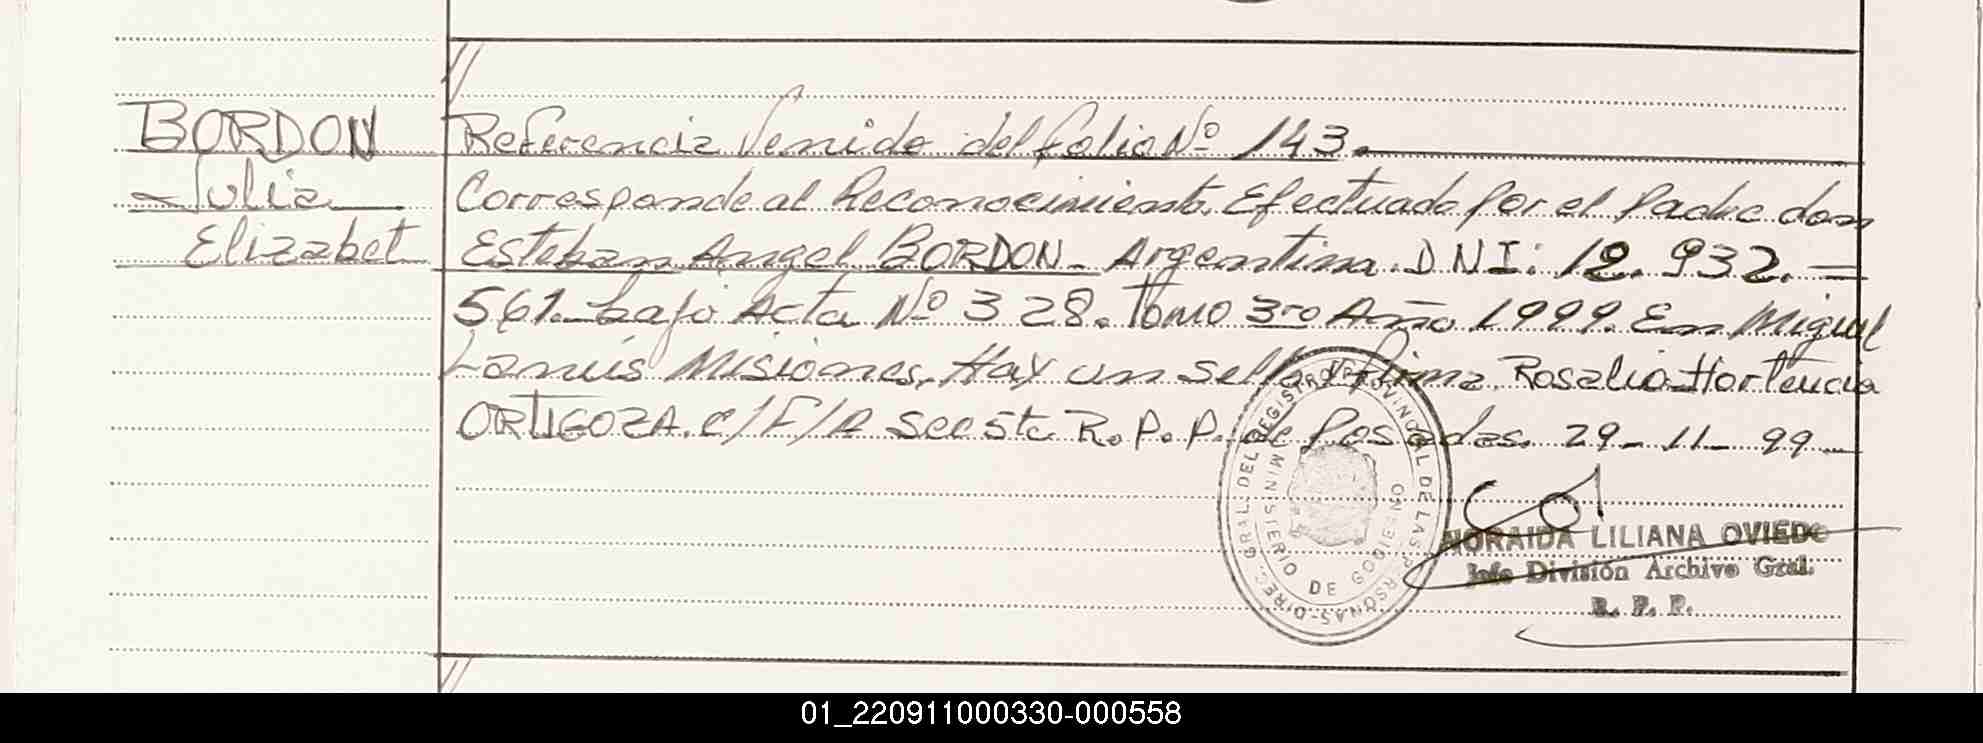 BORDON
Julia
Elizabet
Referencia Venida del folio Nº 143.
Corresponde al Reconocimiento Efectuado por el Padre don
Esteban Angel BORDON - Argentina. D N I: 12. 932. =
561. bajo Acta Nº 328. Tomo 3ro Año 1999. En Miguel
Lanús Misiones. Hay un sello y firma Rosalia Hortencia
ORTIGOZA. c/F/A secste R. P. P. de Posadas. 29- 11- 99
DIREC. GRAL. DEL REGISTRO PROVINCIAL DE LAS PERSONAS
MINISTERIO DE GOBIERNO
NORAIDA LILIANA OVIEDO
Jefe División Archivo Gral.
R. P. P.
01_220911000330-000558